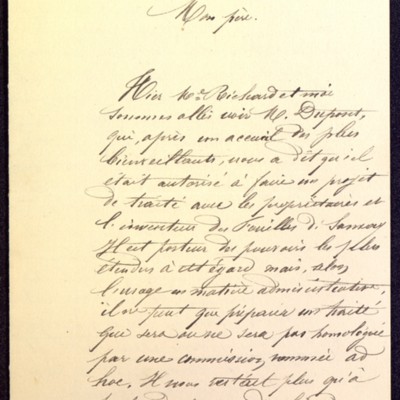 Mon père.
Hier Mr Richard et moi
sommes allés voir M. Dupont,
qui, après un accueil des plus
bienveillants, nous a dit qu'il
était autorisé à faire un projet
de traité avec les propriétaires et
l'inventeur des Feuilles de
Il est porteur des pouvoirs les plus
étendus à cet égard mais, selon
l'usage en matière administrative,
il ne peut que préparer un traité
que sera ou ne sera pas homologué
par une commission, nommée ad
hoc. Il nous restait plus qu'à